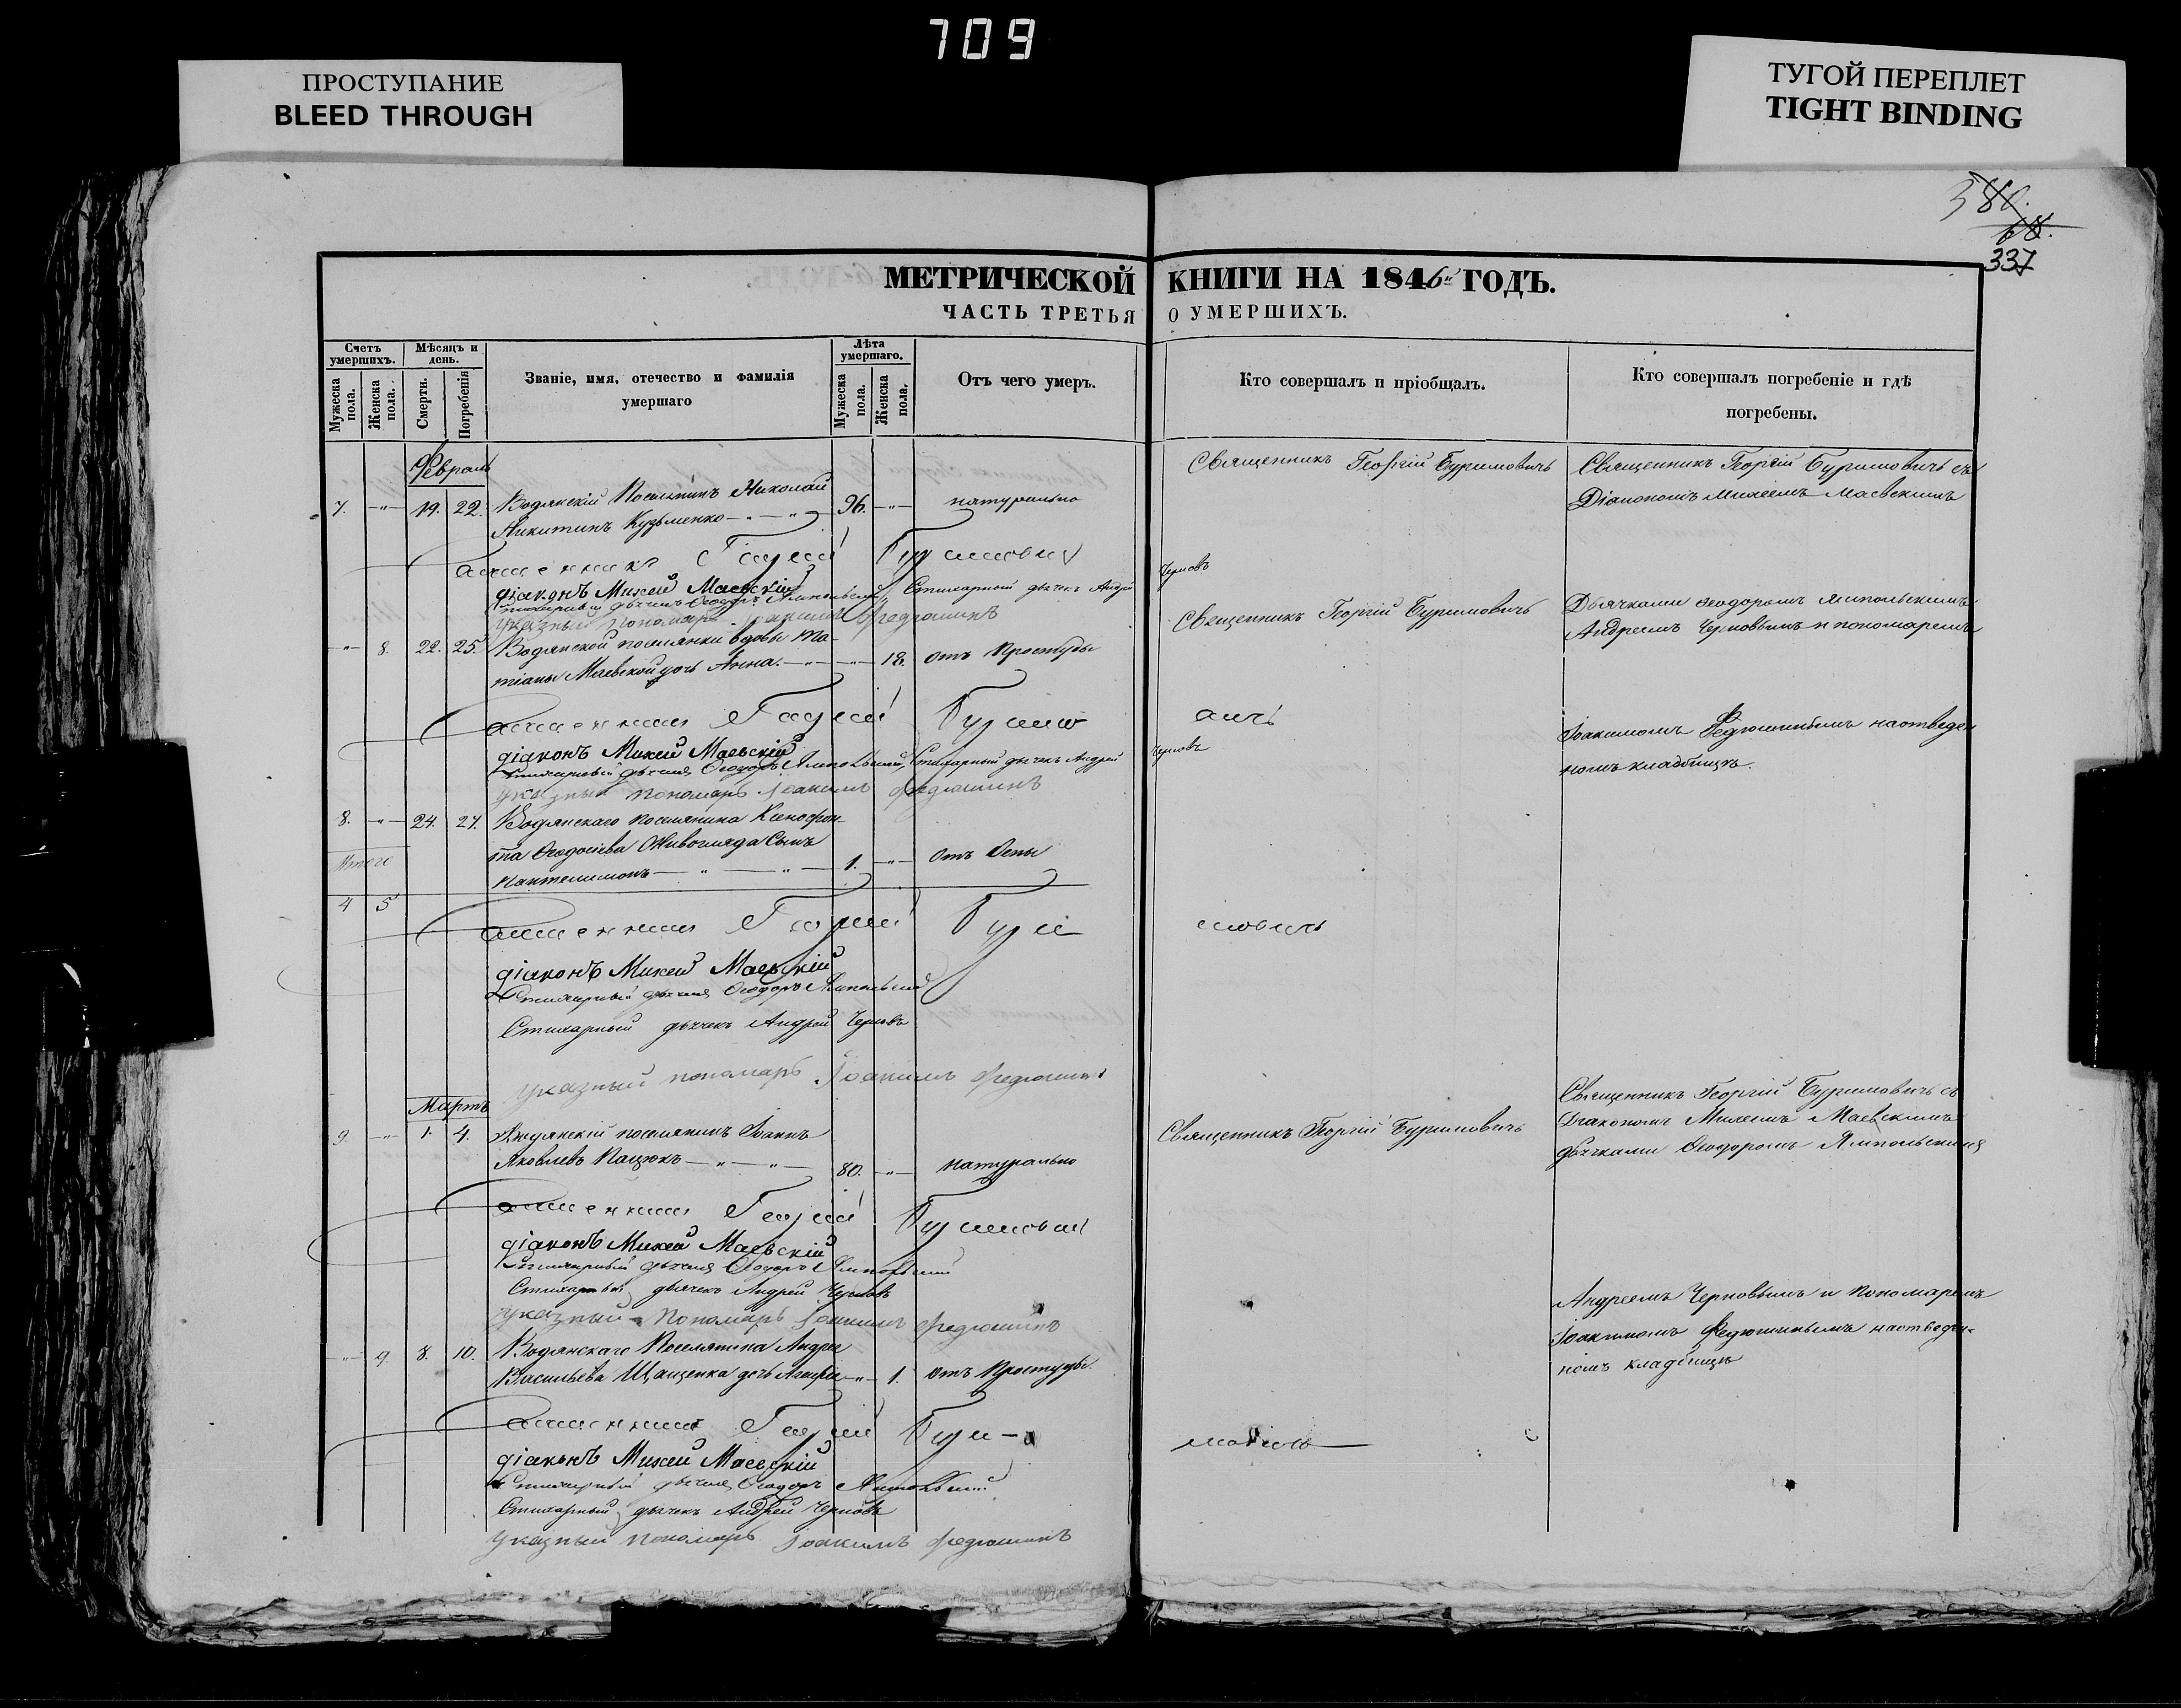 709
ПРОСТУПАНИЕ
BLEED THROUGH
ТУГОЙ ПЕРЕПЛЕТ
TIGHT BINDING
580.
68.
337
МЕТРИЧЕСКОЙ КНИГИ НА 1846й ГОДЪ.
ЧАСТЬ ТРЕТЬЯ О УМЕРШИХЪ.
Счетъ умершихъ.
Мужеска пола.
Женска пола.
Мѣсяцъ и день.
Смерти.
Погребенія
Званіе, имя, отечество и фамилія
умершаго
Лѣта умершаго.
Мужеска пола.
Женска пола.
Отъ чего умеръ.
Кто совершалъ и пріобщалъ.
Кто совершалъ погребеніе и гдѣ
погребены.
Февраль
7. -"- 19. 22. Водянскій Поселянинъ Николай
Никитинъ Кузьменко -"-"- 96. -"- натурально
Священникъ Георгій Буримовичь
Священникъ Георгій Буримовичь съ
Діакономъ Михеемъ Маевскимъ
Георгій Буримовичь
діаконъ Михей Маевскій
Стихарный дьячекъ Ѳеодоръ Ямпольскій, Стихарный дьячекъ Андрей Черновъ
Указный пономарь Іоакимъ Федюшинъ
-"- 8. 22. 25. Водянской поселянки вдовы Та-
тіаны Маевской дочь Анна. -"- -"- 18. отъ Простуды
Священникъ Георгій Буримовичь
Дьячками Ѳеодоромъ Ямпольскимъ
Андреемъ Черновымъ и пономаремъ
Георгій Буримовичь
діаконъ Михей Маевскій
Стихарный дьячекъ Ѳеодоръ Ямпольскій, Стихарный дьячекъ Андрей Черновъ
Указный пономарь Іоакимъ Федюшинъ
Іоакимомъ Федюшинымъ на отведен
номъ кладбищѣ.
8. -"- 24. 27. Водянскаго поселянина Ксенофон-
та Ѳеодосіева Сынъ
Пантелимонъ -"-"- 1. -"- отъ Оспы
Итого
4 5
Георгій Буримовичь
діаконъ Михей Маевскій
Стихарный дьячекъ Ѳеодоръ Ямпольскій
Стихарный дьячекъ Андрей Черновъ
Указный пономарь Іоакимъ Федюшинъ
Мартъ
9. -"- 1. 4. Водянскій поселянинъ Іоаннъ
Яковлевъ Пацюкъ -"-"- 80. -"- натурально
Священникъ Георгій Буримовичь
Священникъ Георгій Буримовичь съ
Діакономъ Михеемъ Маевскимъ
дьячками Ѳеодоромъ Ямпольскимъ
Георгій Буримовичь
діаконъ Михей Маевскій
Стихарный дьячекъ Ѳеодоръ Ямпольскій
Стихарный дьячекъ Андрей Черновъ
Указный Пономарь Іоакимъ Федюшинъ
Андреемъ Черновымъ и Пономаремъ
Іоакимомъ Федюшинымъ на отведен-
номъ кладбищѣ
-"- 9. 8. 10. Водянскаго Поселянина Андрея
Васильева дочь -"- 1. отъ Простуды.
Георгій Буримовичь
діаконъ Михей Маевскій
Стихарный дьячекъ Ѳеодоръ Ямпольскій
Стихарный дьячекъ Андрей Черновъ
Указный пономарь Іоакимъ Федюшинъ